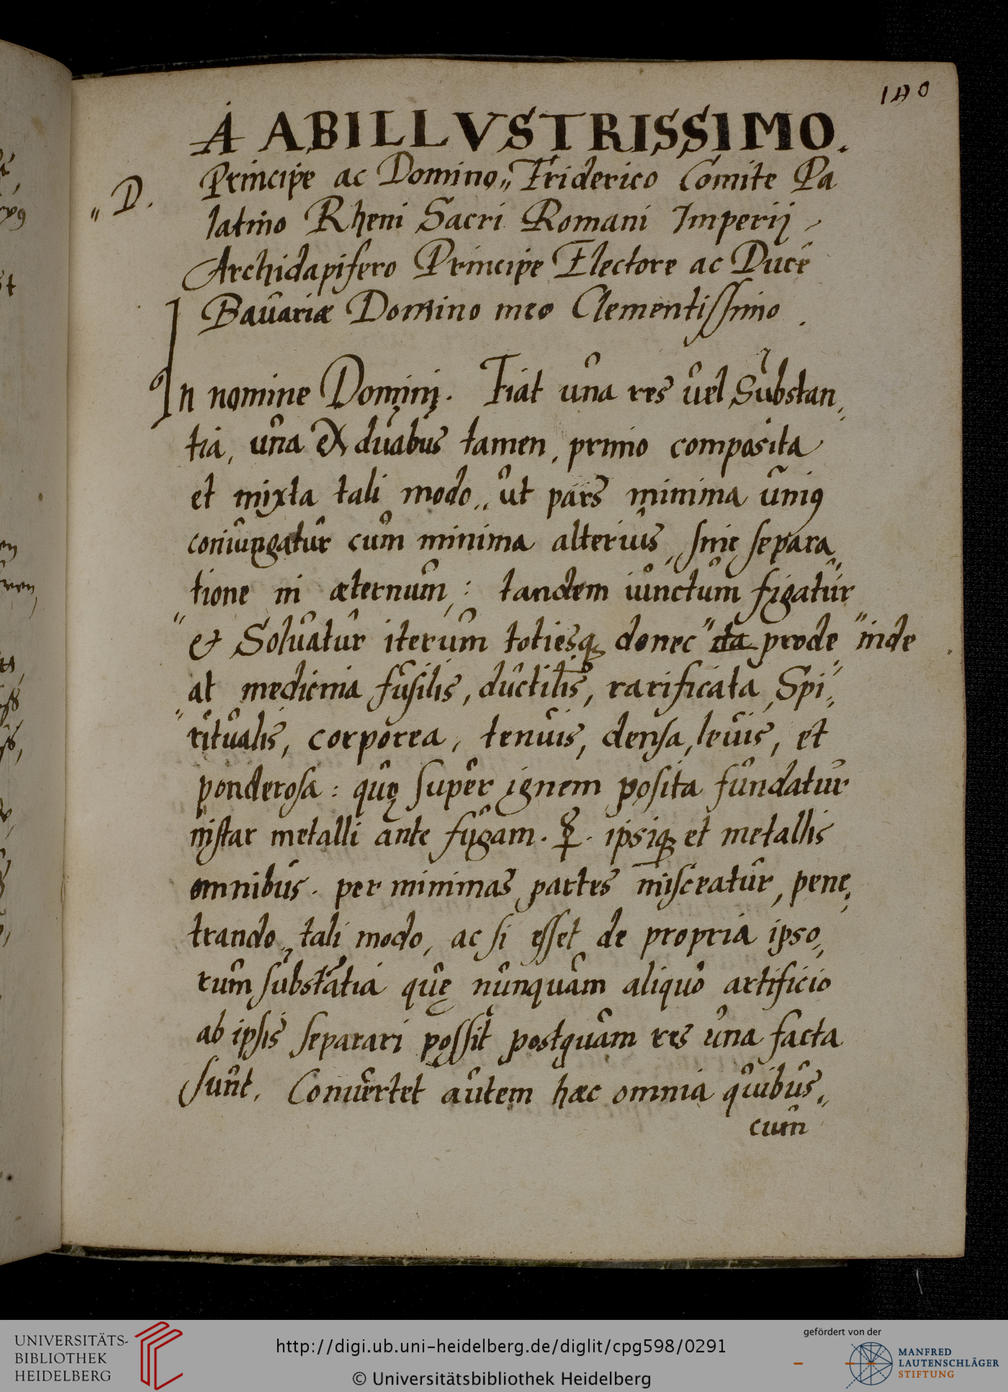 140
A ABILLVSTRISSIMO.
„ D. Principe ac Domino„ Friderico Comite Pa
latino Rheni Sacri Romani Imperij
Archidapifero Principe Electore ac Duce
Bavariæ Domino meo Clementissimo.
In nomine Domini. Fiat una res vel Substan„
tia, una ex duabus tamen, primo composita
et mixta tali modo„ ut pars minima unius
coniungatur cum minima alterius, sine separa„
tione in æternum,: tandem iunctum figatur
„ et Solvatur iterum totiesq; donec „ ita prode „ inde
at medicina fusilis, ductilis, rarificata, Spi„
„ ritualis, corporea, tenuis, densa, levis, et
ponderosa: quę super ignem posita fundatur
instar metalli ante fugam. ☿. ipsiq; et metallis
omnibus. per minimas partes misceatur, pene„
trando„ tali modo, ac si esset de propria ipso„
rum substātia quę nunquam aliquo artificio
ab ipsis separari possit postquam res una facta
sunt. Convertet autem hæc omnia quibus„
cum
UNIVERSITÄTS-
BIBLIOTHEK
HEIDELBERG
http://digi.ub.uni-heidelberg.de/diglit/cpg598/0291
© Universitätsbibliothek Heidelberg
gefördert von der
MANFRED
LAUTENSCHLÄGER
STIFTUNG